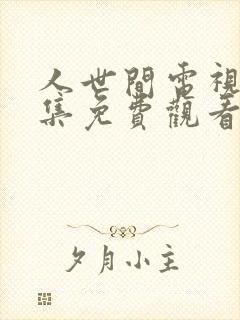 人世間電視
集免費觀看
夕月小主